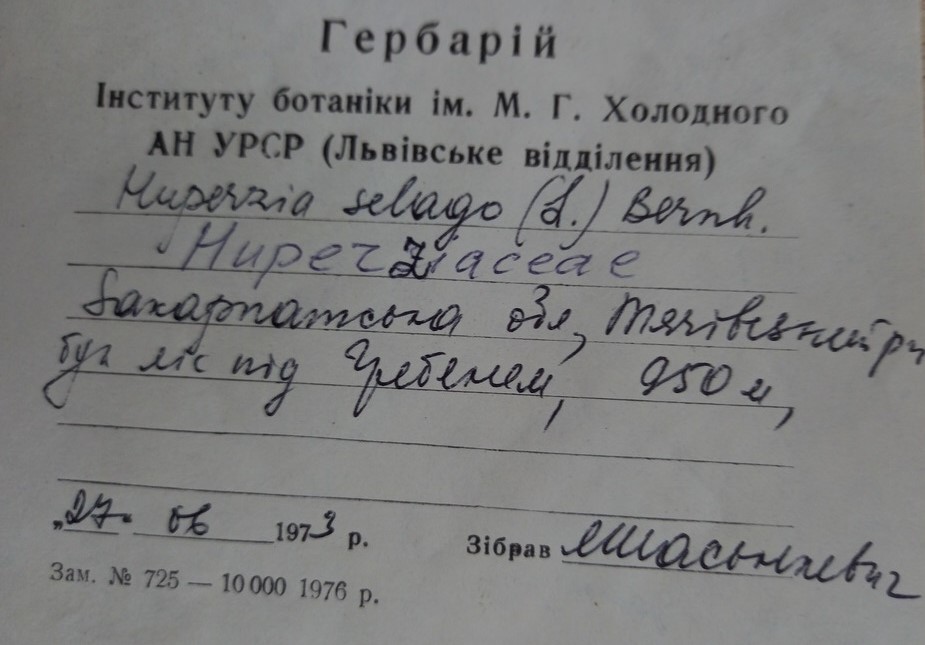 Гербарій
Інституту ботаніки ім. М. Г. Холодного
АН УРСР (Львівське відділення)
Huperzia selago (L.) Bernh.
Huperziaceae
Закарпатська обл, Тячівський рн
бук ліс під Гребенем, 950 м,
„27. 06 1973 р. Зібрав
Зам. № 725 — 10 000 1976 р.